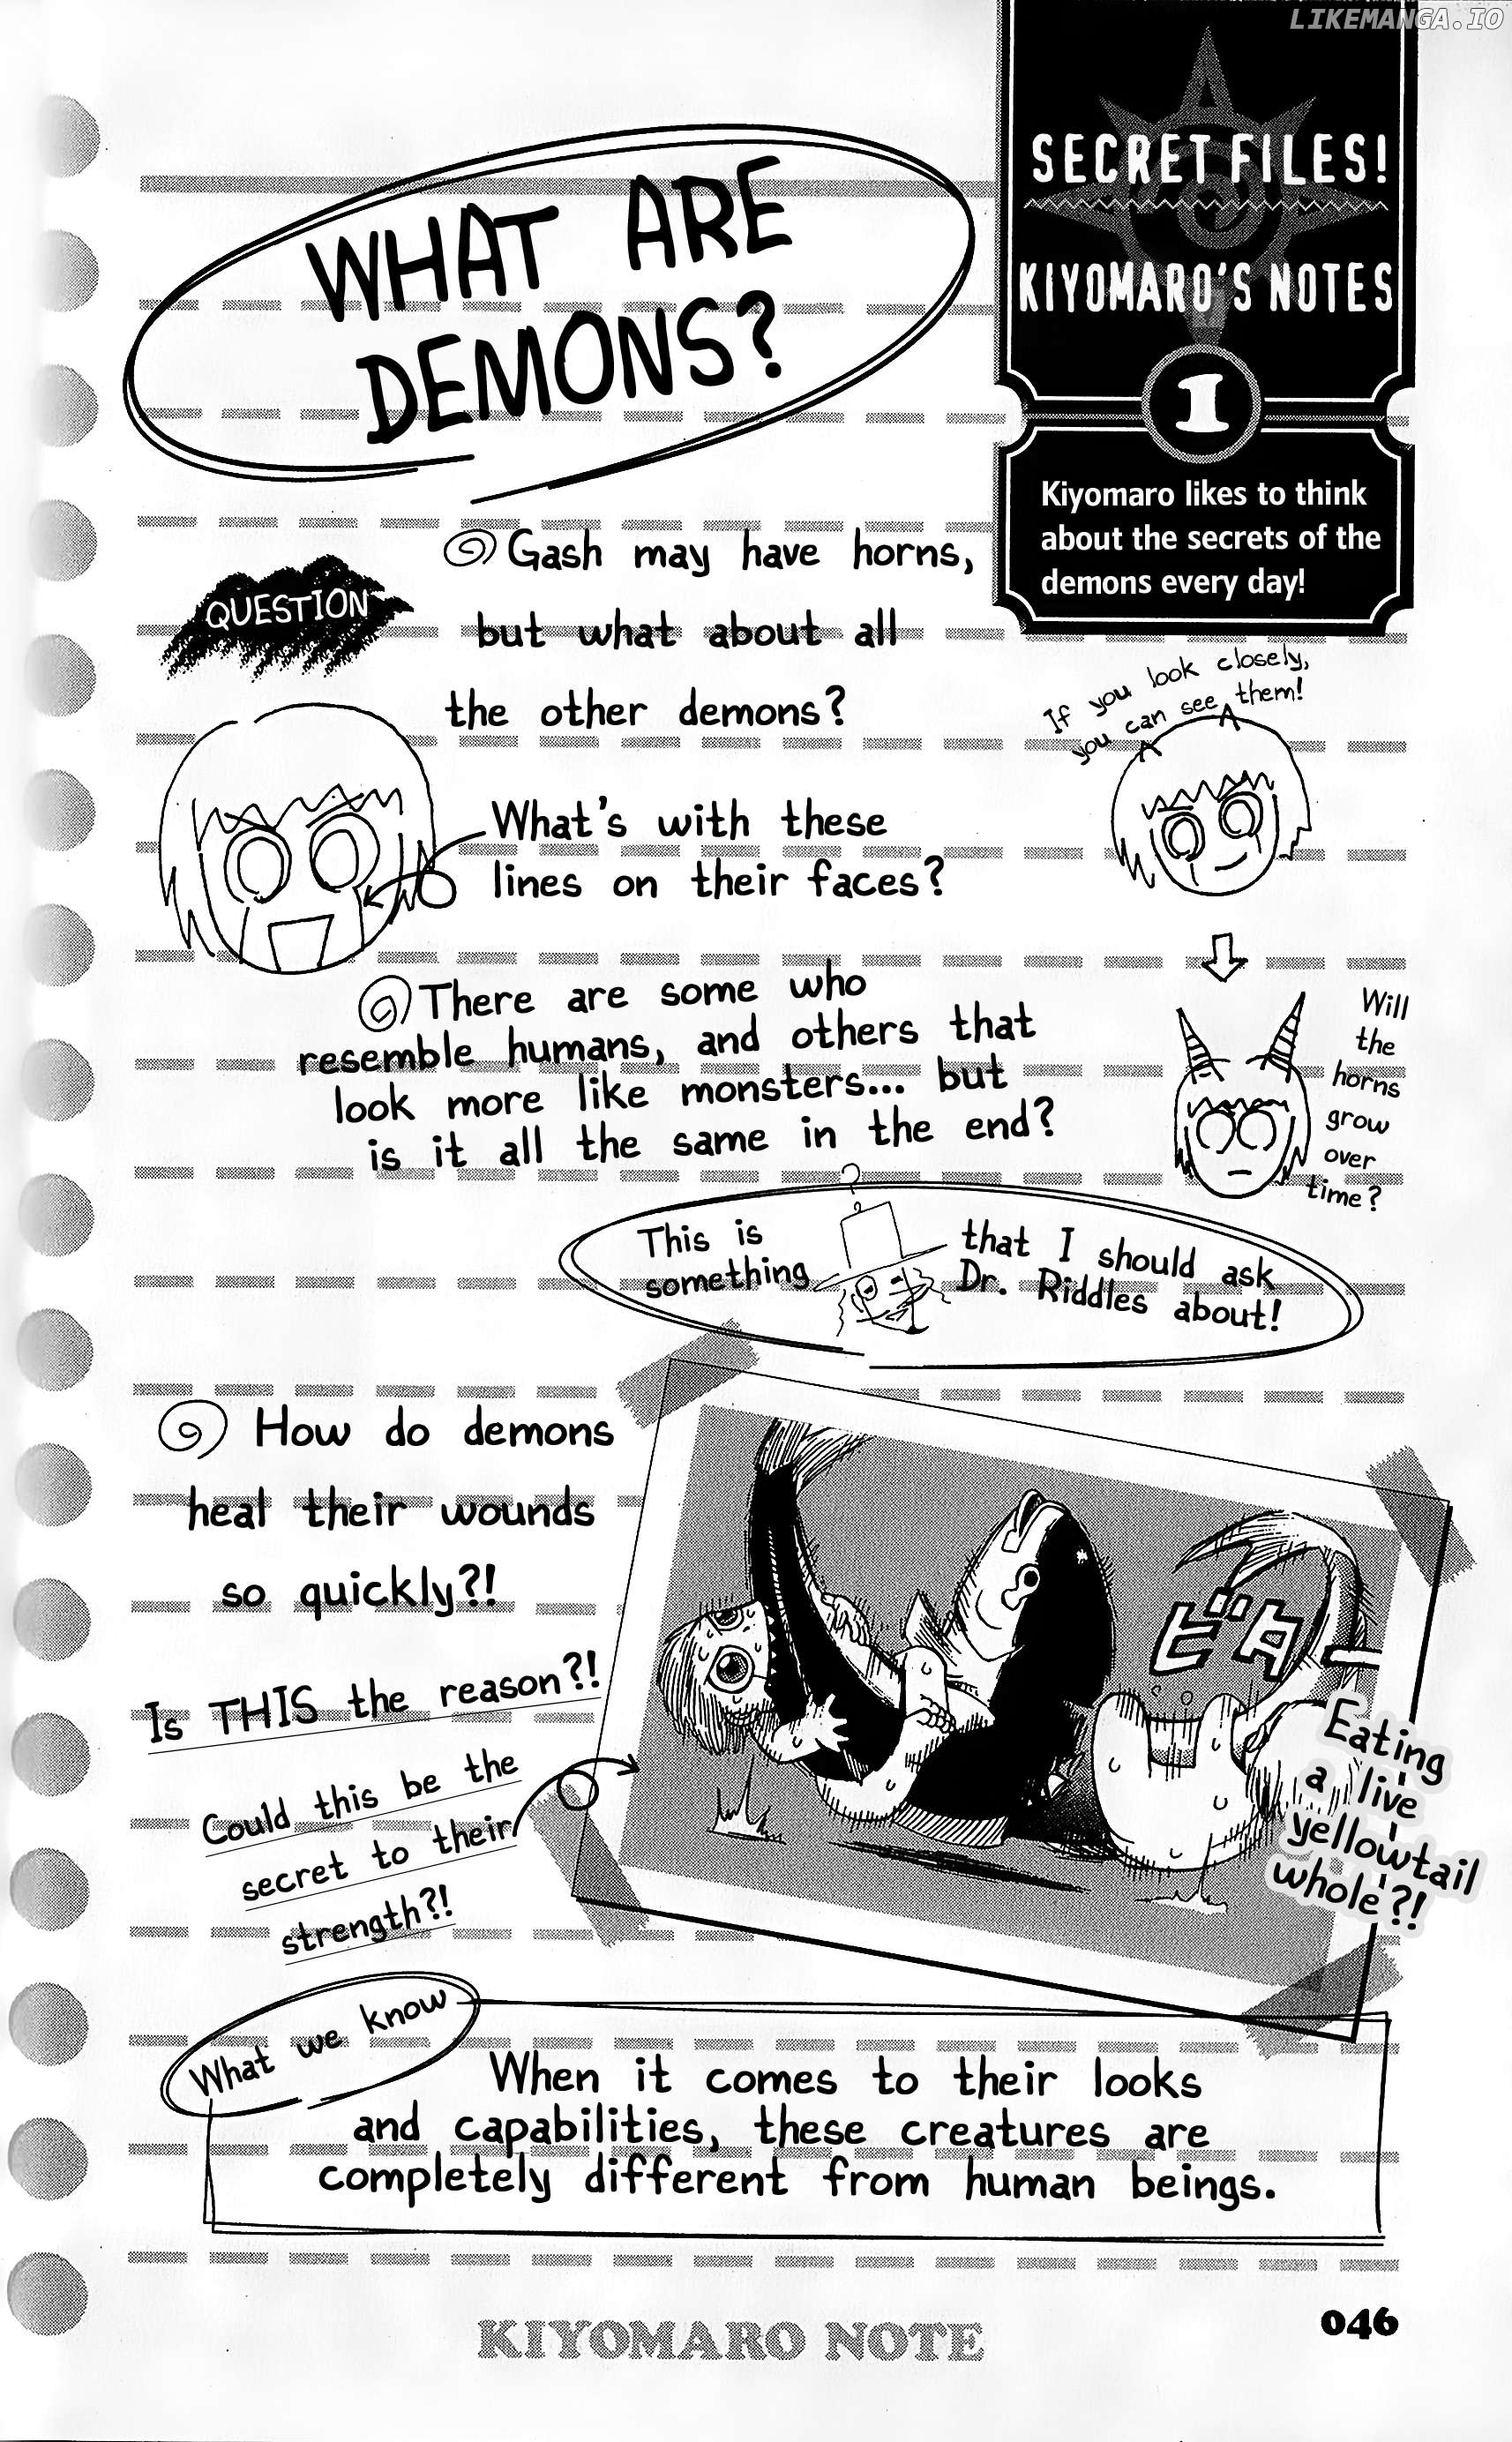 LIKEMANGA.IO
SECRET FILES!
KIYOMARO'S NOTES
1
Kiyomaro likes to think
about the secrets of the
demons every day!
WHAT ARE
DEMONS?
QUESTION
Gash may have horns,
but what about all
the other demons?
If you look closely,
you can see them!
What's with these
lines on their faces?
There are some who
resemble humans, and others that
look more like monsters... but
is it all the same in the end?
Will
the
horns
grow
over
time?
This is
something
that I should ask
Dr. Riddles about!
How do demons
heal their wounds
so quickly?!
Is THIS the reason?!
Could this be the
secret to their
strength?!
ビターー
Eating
a live
yellowtail
whole?!
What we know
When it comes to their looks
and capabilities, these creatures are
completely different from human beings.
KIYOMARO NOTE
046